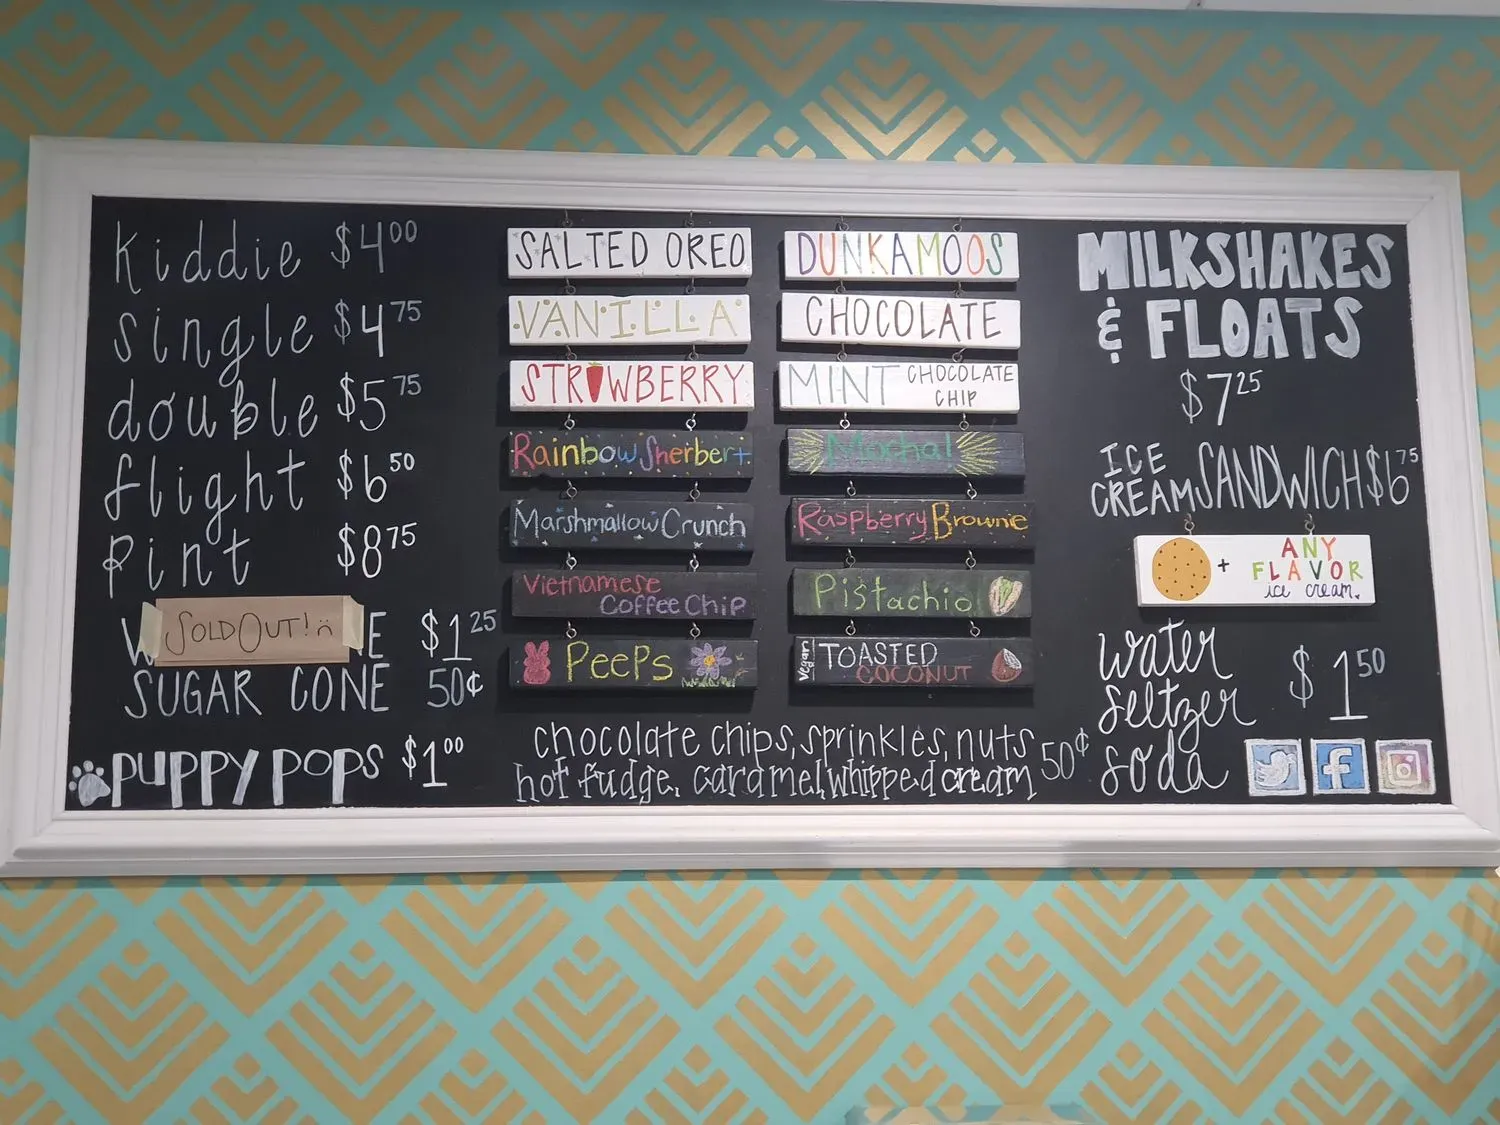 kiddie $4.00
single $4.75
double $5.75
flight $6.50
Pint $8.75
SOLD OUT!
E $1.25
SUGAR CONE 50¢
PUPPY POPS $1.00
SALTED OREO
VANILLA
STRAWBERRY
Rainbow Sherbert
Marshmallow Crunch
Vietnamese
Coffee Chip
Peeps
DUNKAMOOS
CHOCOLATE
MINT CHOCOLATE
CHIP
Mocha!
Raspberry Brownie
Pistachio
vegan! TOASTED
COCONUT
chocolate chips, sprinkles, nuts
hot fudge, caramel, whipped cream 50¢
MILKSHAKES
& FLOATS
$7.25
ICE
CREAM SANDWICH $6.75
+ ANY
FLAVOR
ice cream.
water
seltzer $1.50
soda